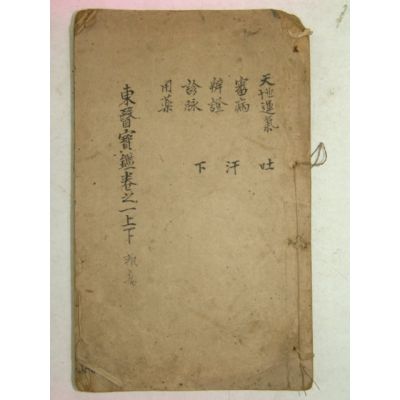 天地運氣 吐
審病 汗
辨證 下
診脉
用藥
東醫寶鑑卷之一上下